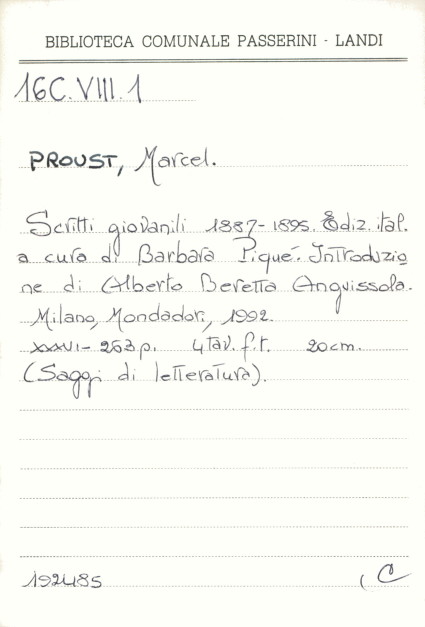 BIBLIOTECA COMUNALE PASSERINI - LANDI
16C.VIII.1
PROUST, Marcel.
Scritti giovanili 1887-1895. Ediz. ital.
a cura di Barbara Piqué. Introduzio
ne di Alberto Beretta Anguissola.
Milano, Mondadori, 1992.
XXXVI- 253 p. 4 tav. f.t. 20 cm.
(Saggi di letteratura).
192485
C